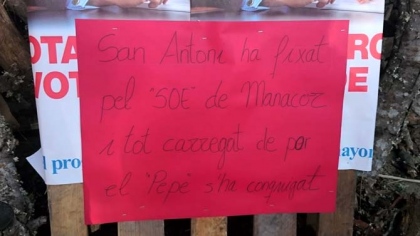 OTA
VOT
pro
RO
DE
ayor
San Antoni ha fixat
pel "SOE" de Manacor
i tot carregat de por
el "Pepe" s'ha conjugat